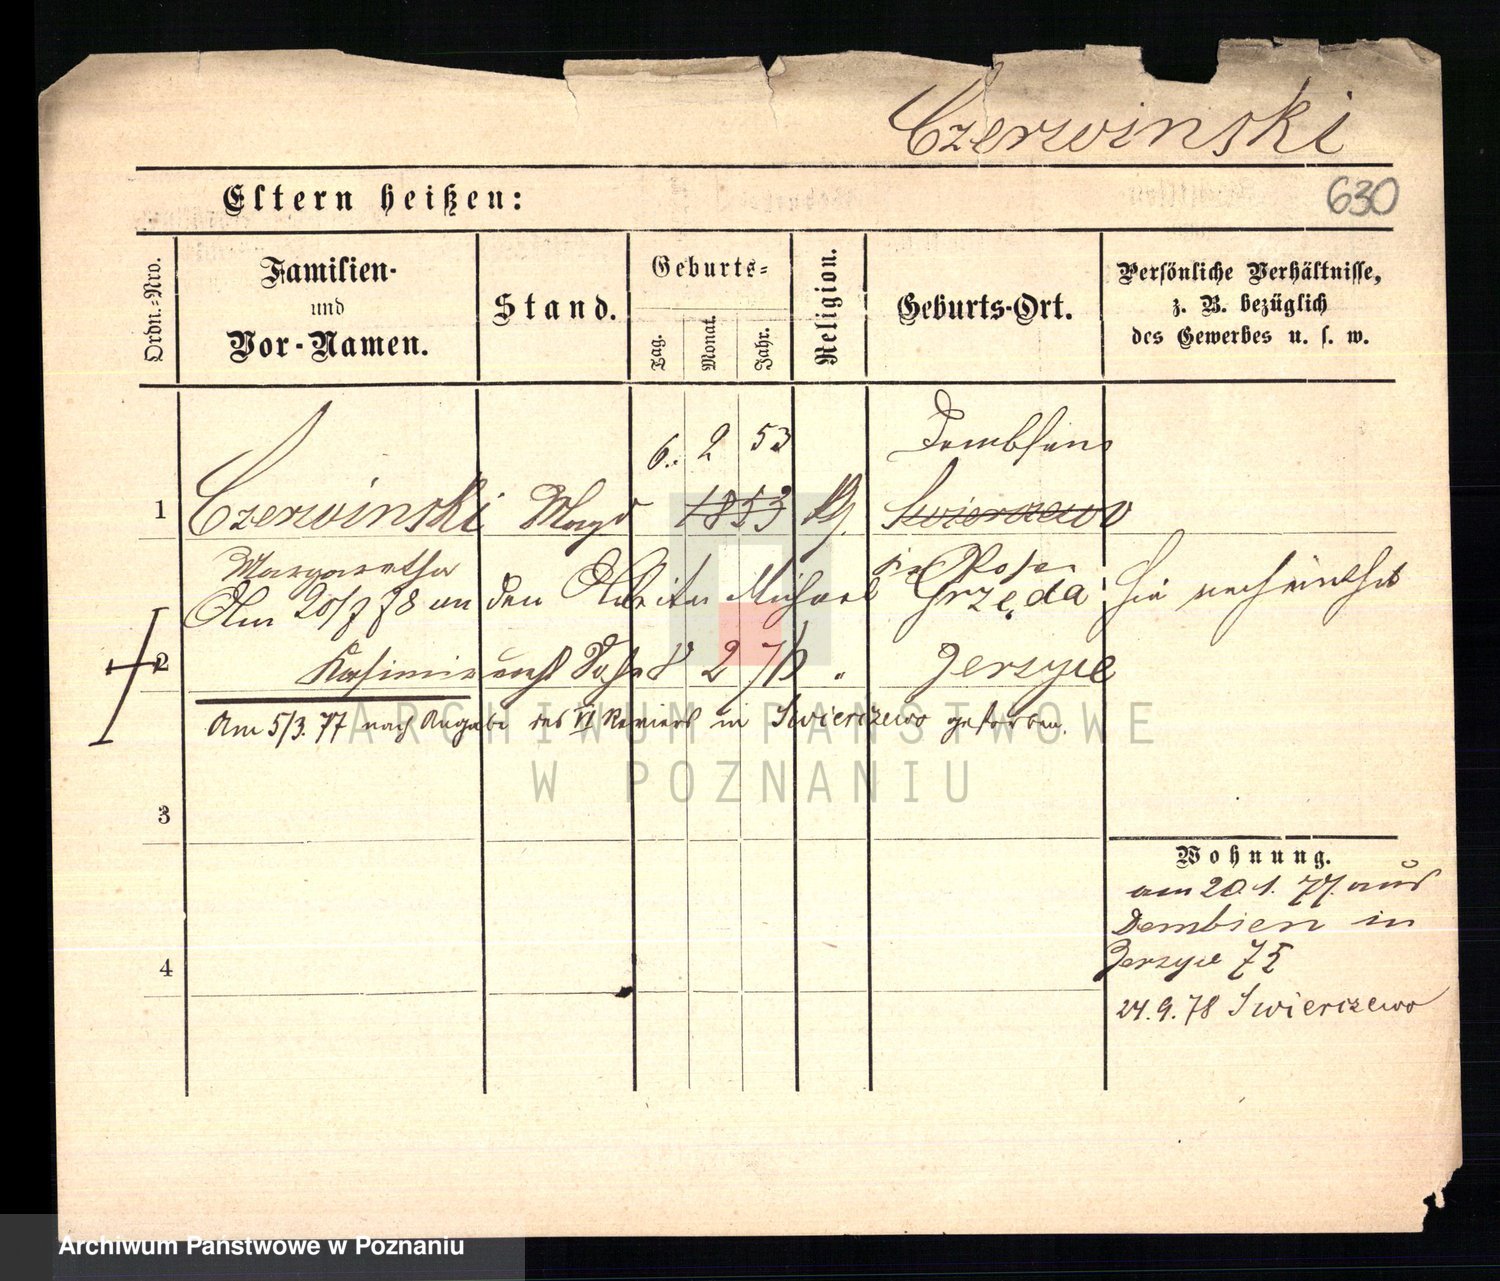 Czerwinski
Eltern heißen:
630
Ordn.-Nro.
Familien-
und
Vor-Namen.
Stand.
Geburts-
Tag.
Monat.
Jahr.
Religion.
Geburts-Ort.
Persönliche Verhältnisse,
z. B. bezüglich
des Gewerbes u. s. w.
6. 2 53 Dembsen
1 Czerwinski Magd 1853 Swierczewo
Margaretha
Am 20/7 78 an den Arbeiter Michael Grzęda hie verheirathet
2 Kasimir 8 2 " Jerzyce
Am 5/3. 77 nach Angabe des VI Reviers in Swierczewo gestorben.
3
4
Wohnung.
am 20. 1. 77. aus
Dembsen in
Jerzyce 75
24. 9. 78 Swierczewo
ARCHIWUM PAŃSTWOWE
W POZNANIU
Archiwum Państwowe w Poznaniu